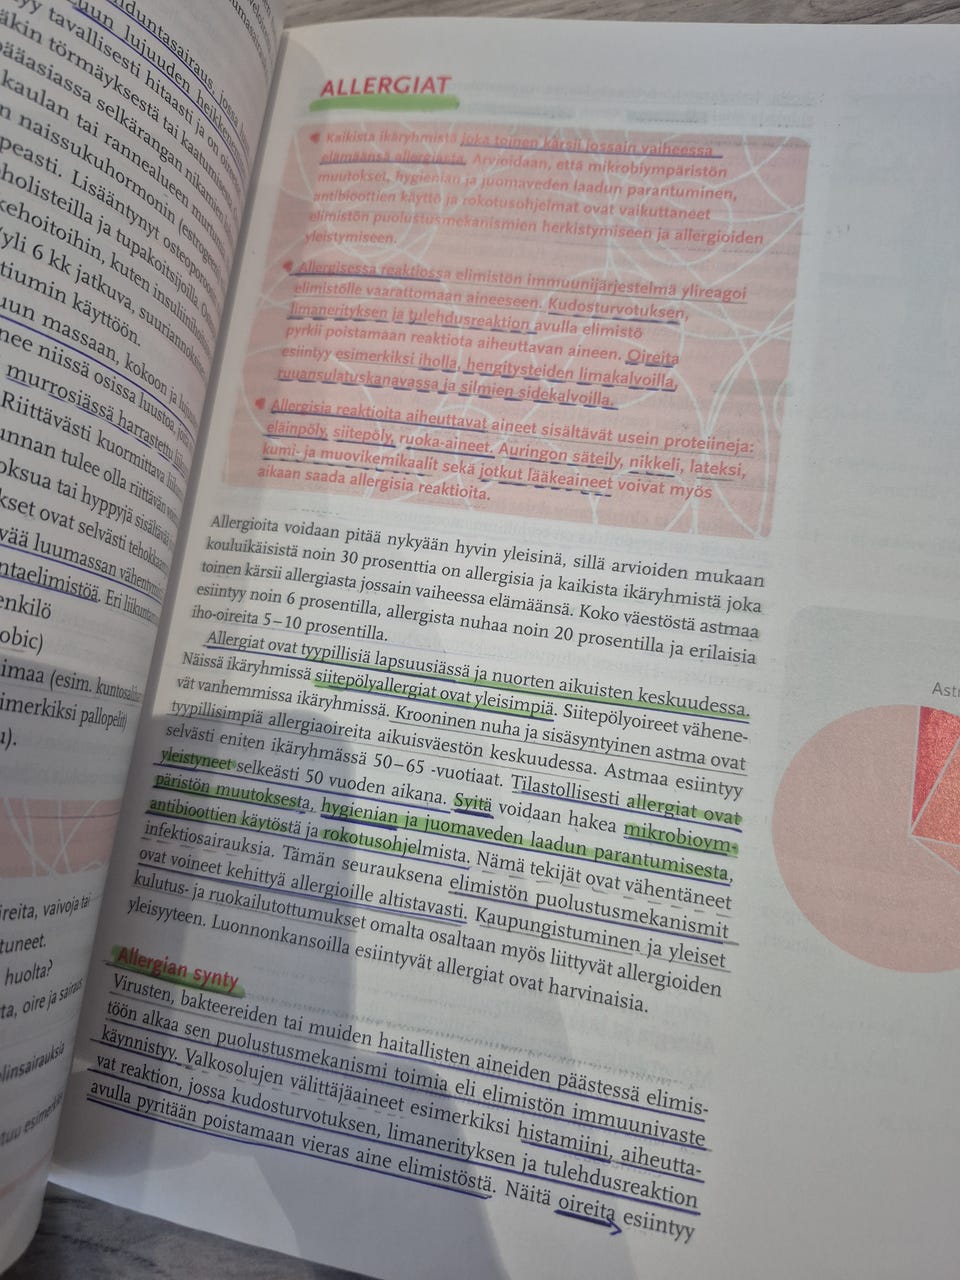 duntasairaus, jossa
uun lujuuden heikkenem
yy tavallisesti hitaasti ja on oiree
äkin törmäyksestä tai kaatumises
pääasiassa selkärangan nikamien
kaulan tai rannealueen murtum
n naissukuhormonin (estrogeeni
peasti. Lisääntynyt osteoporoosi
holisteilla ja tupakoitsijoilla.
kehoitoihin, kuten insuliinihoit
yli 6 kk jatkuva, suuriannoksine
tiumin käyttöön.
uun massaan, kokoon ja lujuu
nee niissä osissa luustoa, joita
murrosiässä harrastettu liik
Riittävästi kuormittava
unnan tulee olla riittävän
oksua tai hyppyjä sisältävä
kset ovat selvästi tehokkaam
vää luumassan vähentymi
ntaelimistöä. Eri liikuntam
enkilö
obic)
imaa (esim. kuntosali
imerkiksi pallopelit)
u).
ireita, vaivoja tai
tuneet.
huolta?
ta, oire ja sairaus
linsairauksia
tuu esimerk
ALLERGIAT
Kaikista ikäryhmistä joka toinen kärsii jossain vaiheessa
elämäänsä allergiasta. Arvioidaan, että mikrobiympäristön
muutokset, hygienian ja juomaveden laadun parantuminen,
antibioottien käyttö ja rokotusohjelmat ovat vaikuttaneet
elimistön puolustusmekanismien herkistymiseen ja allergioiden
yleistymiseen.
Allergisessa reaktiossa elimistön immuunijärjestelmä ylireagoi
elimistölle vaarattomaan aineeseen. Kudosturvotuksen,
limanerityksen ja tulehdusreaktion avulla elimistö
pyrkii poistamaan reaktiota aiheuttavan aineen. Oireita
esiintyy esimerkiksi iholla, hengitysteiden limakalvoilla,
ruuansulatuskanavassa ja silmien sidekalvoilla.
Allergisia reaktioita aiheuttavat aineet sisältävät usein proteiineja:
eläinpöly, siitepöly, ruoka-aineet. Auringon säteily, nikkeli, lateksi,
kumi- ja muovikemikaalit sekä jotkut lääkeaineet voivat myös
aikaan saada allergisia reaktioita.
Allergioita voidaan pitää nykyään hyvin yleisinä, sillä arvioiden mukaan
kouluikäisistä noin 30 prosenttia on allergisia ja kaikista ikäryhmistä joka
toinen kärsii allergiasta jossain vaiheessa elämäänsä. Koko väestöstä astmaa
esiintyy noin 6 prosentilla, allergista nuhaa noin 20 prosentilla ja erilaisia
iho-oireita 5–10 prosentilla.
Allergiat ovat tyypillisiä lapsuusiässä ja nuorten aikuisten keskuudessa.
Näissä ikäryhmissä siitepölyallergiat ovat yleisimpiä. Siitepölyoireet vähene-
vät vanhemmissa ikäryhmissä. Krooninen nuha ja sisäsyntyinen astma ovat
tyypillisimpiä allergiaoireita aikuisväestön keskuudessa. Astmaa esiintyy
selvästi eniten ikäryhmässä 50–65 -vuotiaat. Tilastollisesti allergiat ovat
yleistyneet selkeästi 50 vuoden aikana. Syitä voidaan hakea mikrobioym-
päristön muutoksesta, hygienian ja juomaveden laadun parantumisesta,
antibioottien käytöstä ja rokotusohjelmista. Nämä tekijät ovat vähentäneet
infektiosairauksia. Tämän seurauksena elimistön puolustusmekanismit
ovat voineet kehittyä allergioille altistavasti. Kaupungistuminen ja yleiset
kulutus- ja ruokailutottumukset omalta osaltaan myös liittyvät allergioiden
yleisyyteen. Luonnonkansoilla esiintyvät allergiat ovat harvinaisia.
Allergian synty
Virusten, bakteereiden tai muiden haitallisten aineiden päästessä elimis-
töön alkaa sen puolustusmekanismi toimia eli elimistön immuunivaste
käynnistyy. Valkosolujen välittäjäaineet esimerkiksi histamiini, aiheutta-
vat reaktion, jossa kudosturvotuksen, limanerityksen ja tulehdusreaktion
avulla pyritään poistamaan vieras aine elimistöstä. Näitä oireita esiintyy
Ast